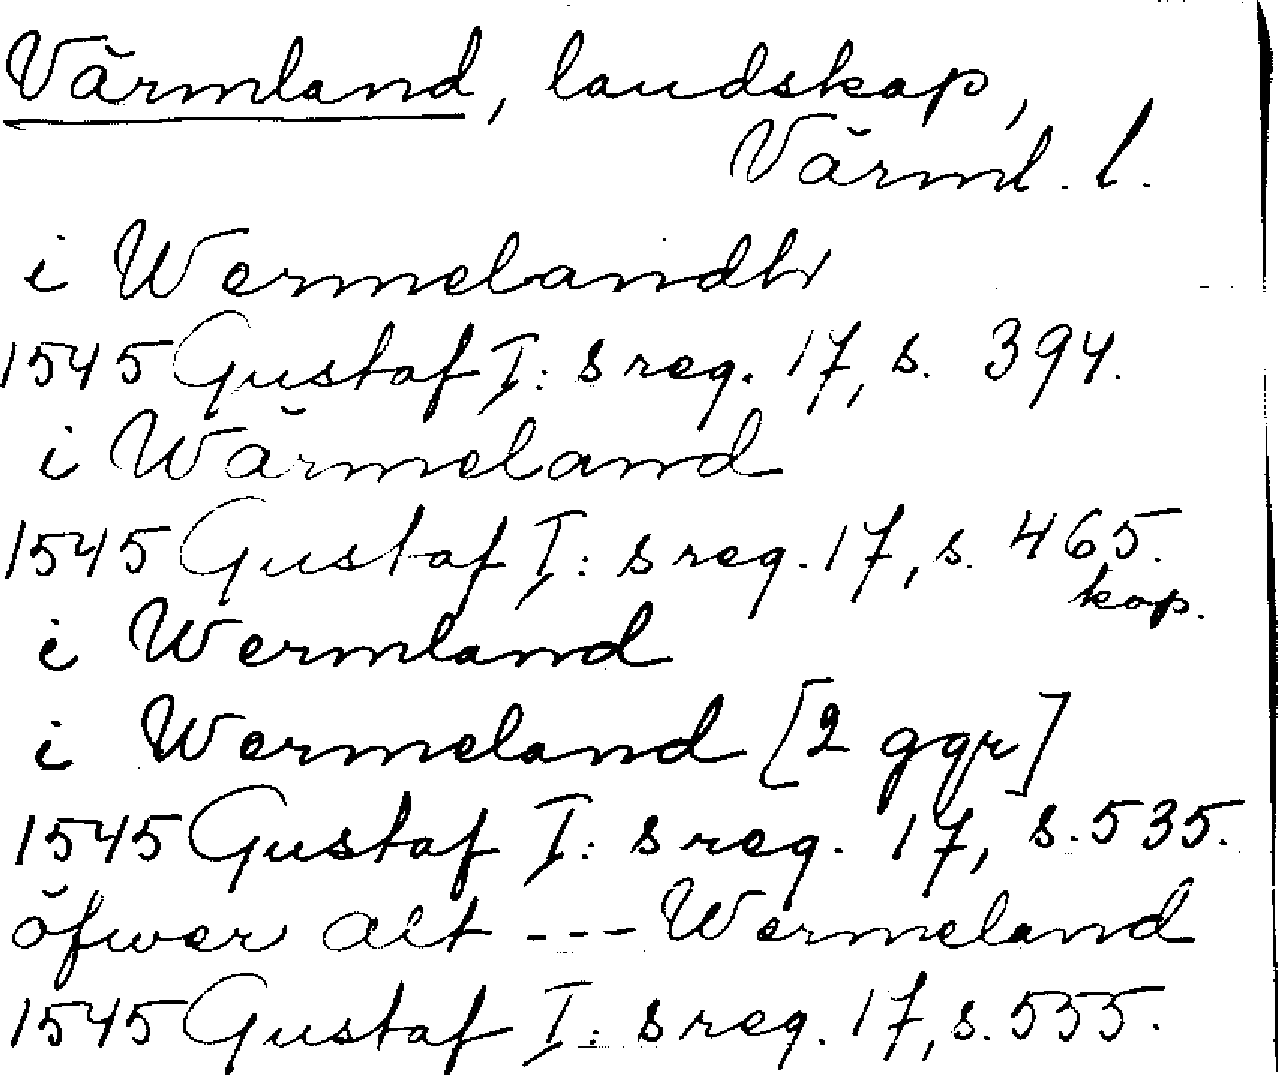 Värmland, landskap,
Värml. l.
i Wermelandh
1545 Gustaf I:s reg. 17, s. 394.
i Wärmeland
1545 Gustaf I:s reg. 17, s. 465.
kop.
i Wermland
i Wermeland [2 ggr]
1545 Gustaf I:s reg. 17, s. 535.
öfwer alt --- Wermeland
1545 Gustaf I:s reg. 17, s. 555.